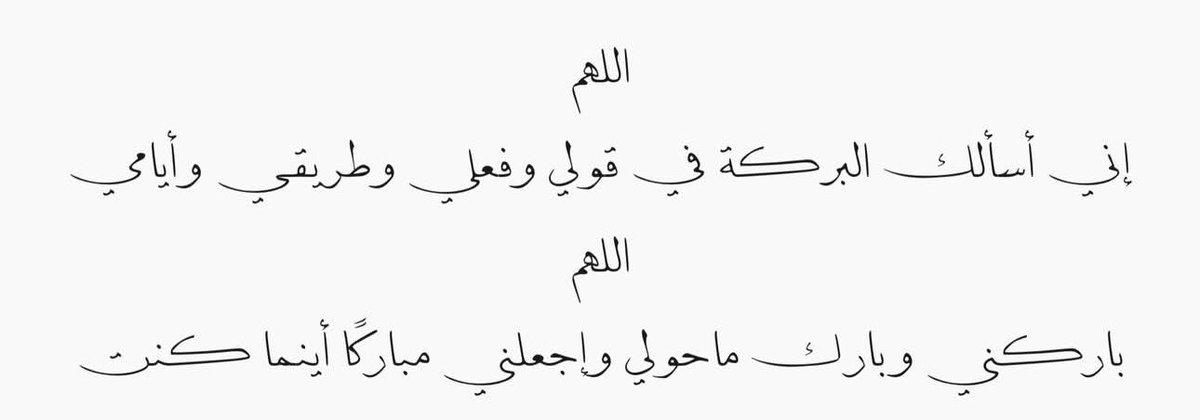 اللهم
إني أسألك البركة في قولي وفعلي وطريقي وأيامي
اللهم
باركني وبارك ماحولي وإجعلني مباركًا أينما كنت